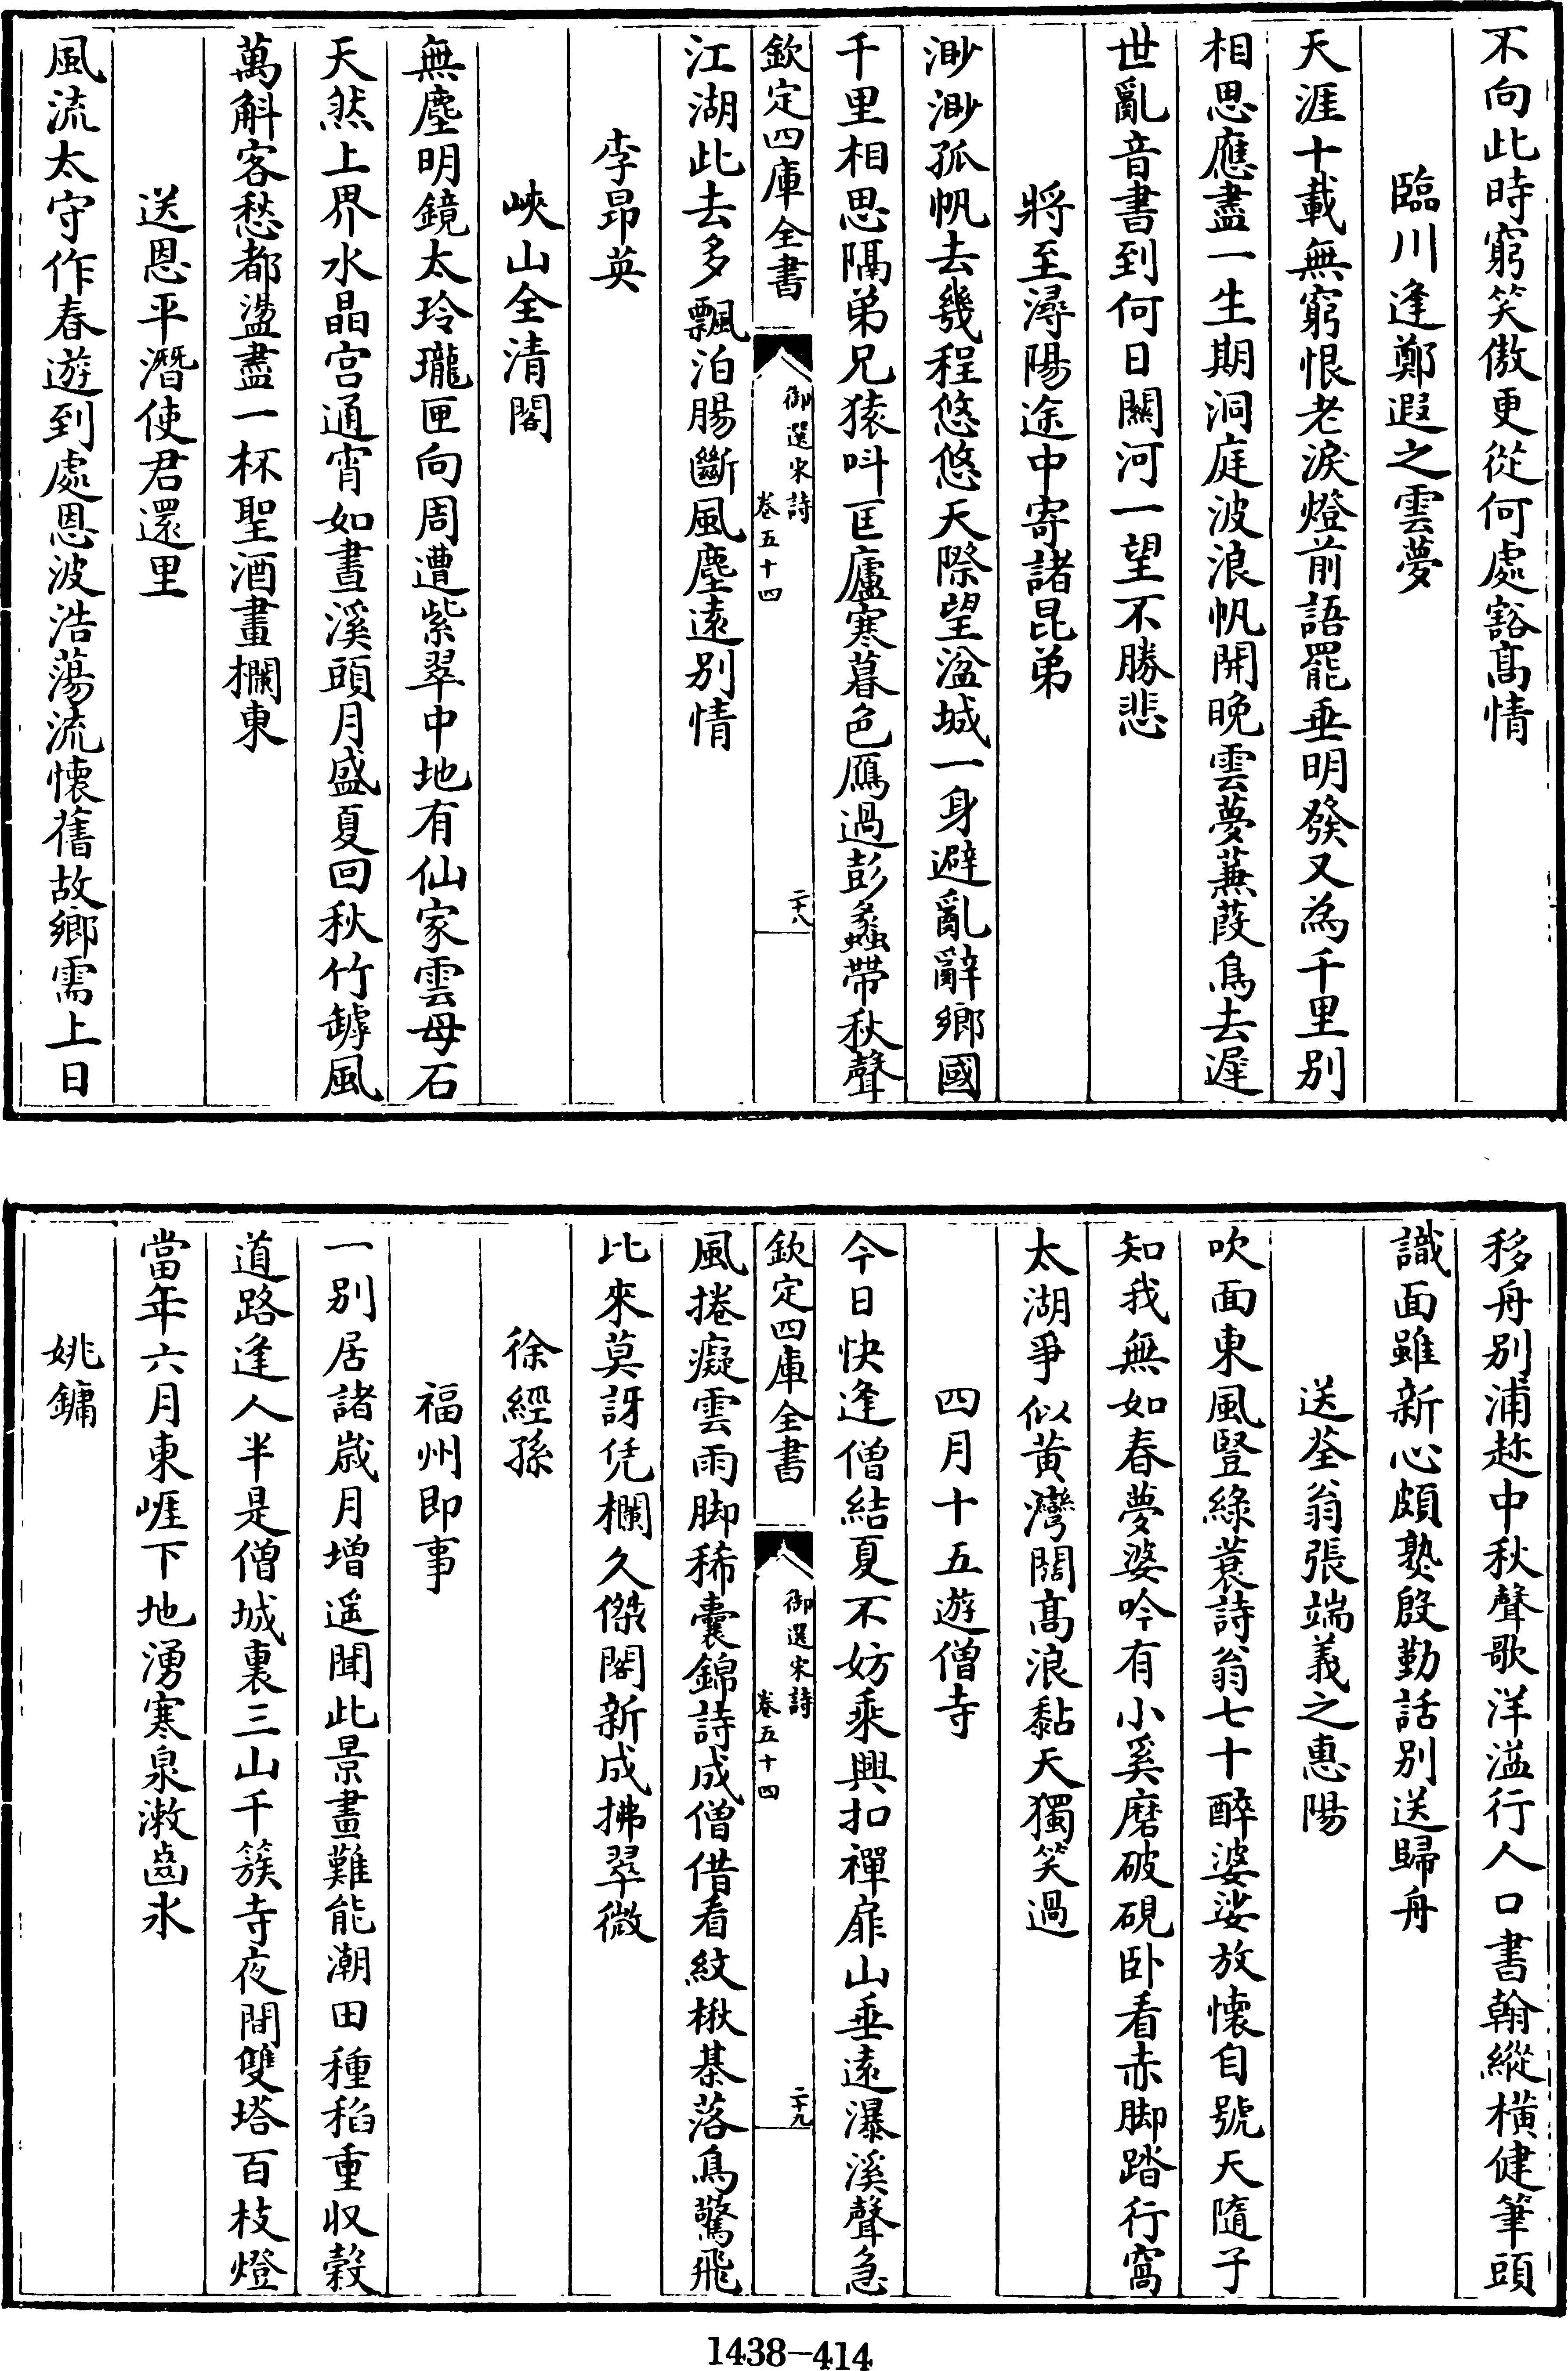 不向此時窮笑傲更從何處豁髙情
臨川逢鄭遐之雲夢
天涯十載無窮恨老淚燈前語罷垂明發又為千里别
相思應盡一生期洞庭波浪帆開晚雲夢蒹葭鳥去遲
世亂音書到何日闗河一望不勝悲
將至潯陽途中寄諸昆弟
渺渺孤帆去幾程悠悠天際望湓城一身避亂辭鄉國
千里相思隔弟兄猿呌匡廬寒暮色鴈過彭蠡帶秋聲
欽定四庫全書
御選宋詩
卷五十四
二十八
江湖此去多飄泊腸斷風塵遠别情
李昂英
峽山全清閣
無塵明鏡太玲瓏匣向周遭紫翠中地有仙家雲母石
天然上界水晶宫通宵如晝溪頭月盛夏回秋竹罅風
萬斛客愁都盪盡一杯聖酒畫欄東
送恩平潛使君還里
風流太守作春遊到處恩波浩蕩流懷舊故鄉需上日
移舟别浦趂中秋聲歌洋溢行人口書翰縱横健筆頭
識面雖新心頗熟殷勤話别送歸舟
送荃翁張端義之惠陽
吹面東風豎綠蓑詩翁七十醉婆娑放懷自號天隨子
知我無如春夢婆吟有小奚磨破硯卧看赤脚踏行窩
太湖爭似黄灣闊髙浪黏天獨笑過
四月十五遊僧寺
今日快逢僧結夏不妨乘興扣禪扉山垂遠瀑溪聲急
欽定四庫全書
御選宋詩
卷五十四
二十九
風捲癡雲雨脚稀囊錦詩成僧借看紋楸棊落鳥驚飛
比來莫訝凭欄久傑閣新成拂翠微
徐經孫
福州即事
一别居諸歲月增遥聞此景畫難能潮田種稻重収穀
道路逢人半是僧城裏三山千簇寺夜間雙塔百枝燈
當年六月東崕下地湧寒泉漱齒氷
姚鏞
1438-414